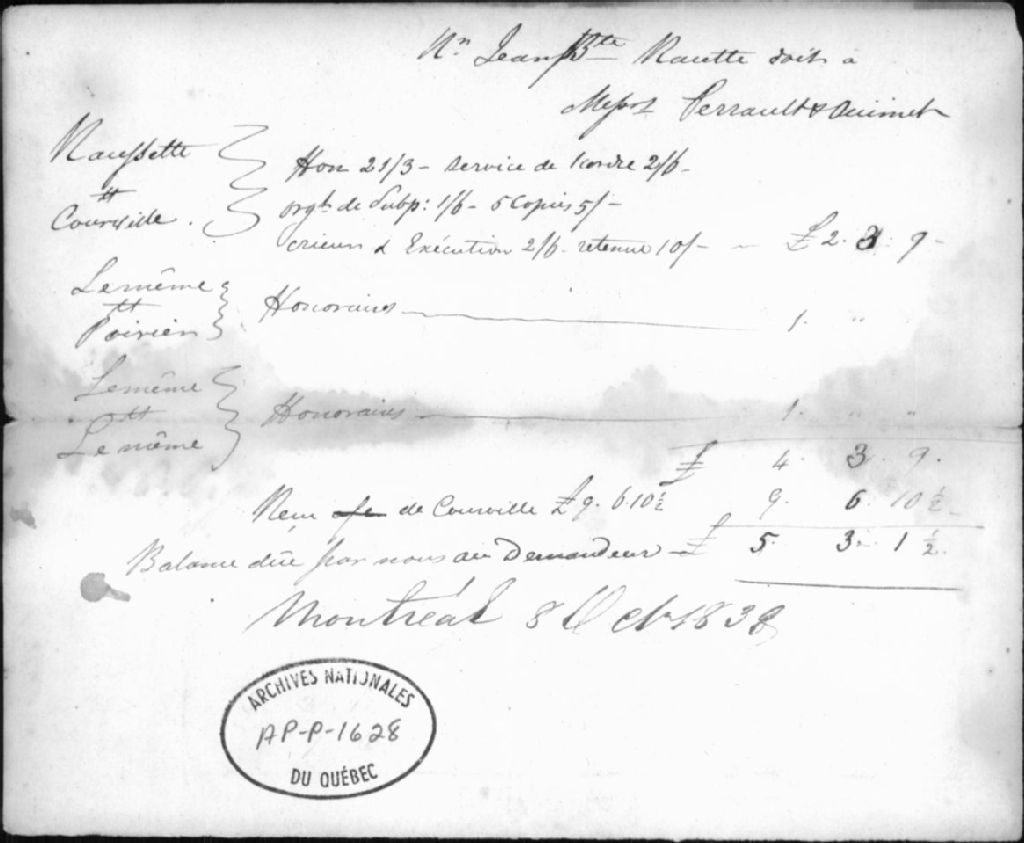 Mr Jean Bte Racette doit à
Messrs Perrault & Ouimet
Raussette
vs
Courville.
Hon 21/3 - service de l'ordre 2/6 -
orgl de Subp: 1/6 - 5 Copies 5/-
crieur & Exécution 2/6 - retenue 10/- — £ 2. 3. 9 -
Le même
vs
Poirier
Honoraires — 1. " "
Le même
vs
Le même
Honoraires — 1. " "
£ 4. 3. 9.
Reçu de Courville £9. 6. 10 ½ 9. 6. 10 ½
Balance due par nous au Demandeur — £ 5. 3. 1 ½
Montréal 8 Oct 1838
ARCHIVES NATIONALES
AP-P-1628
DU QUÉBEC